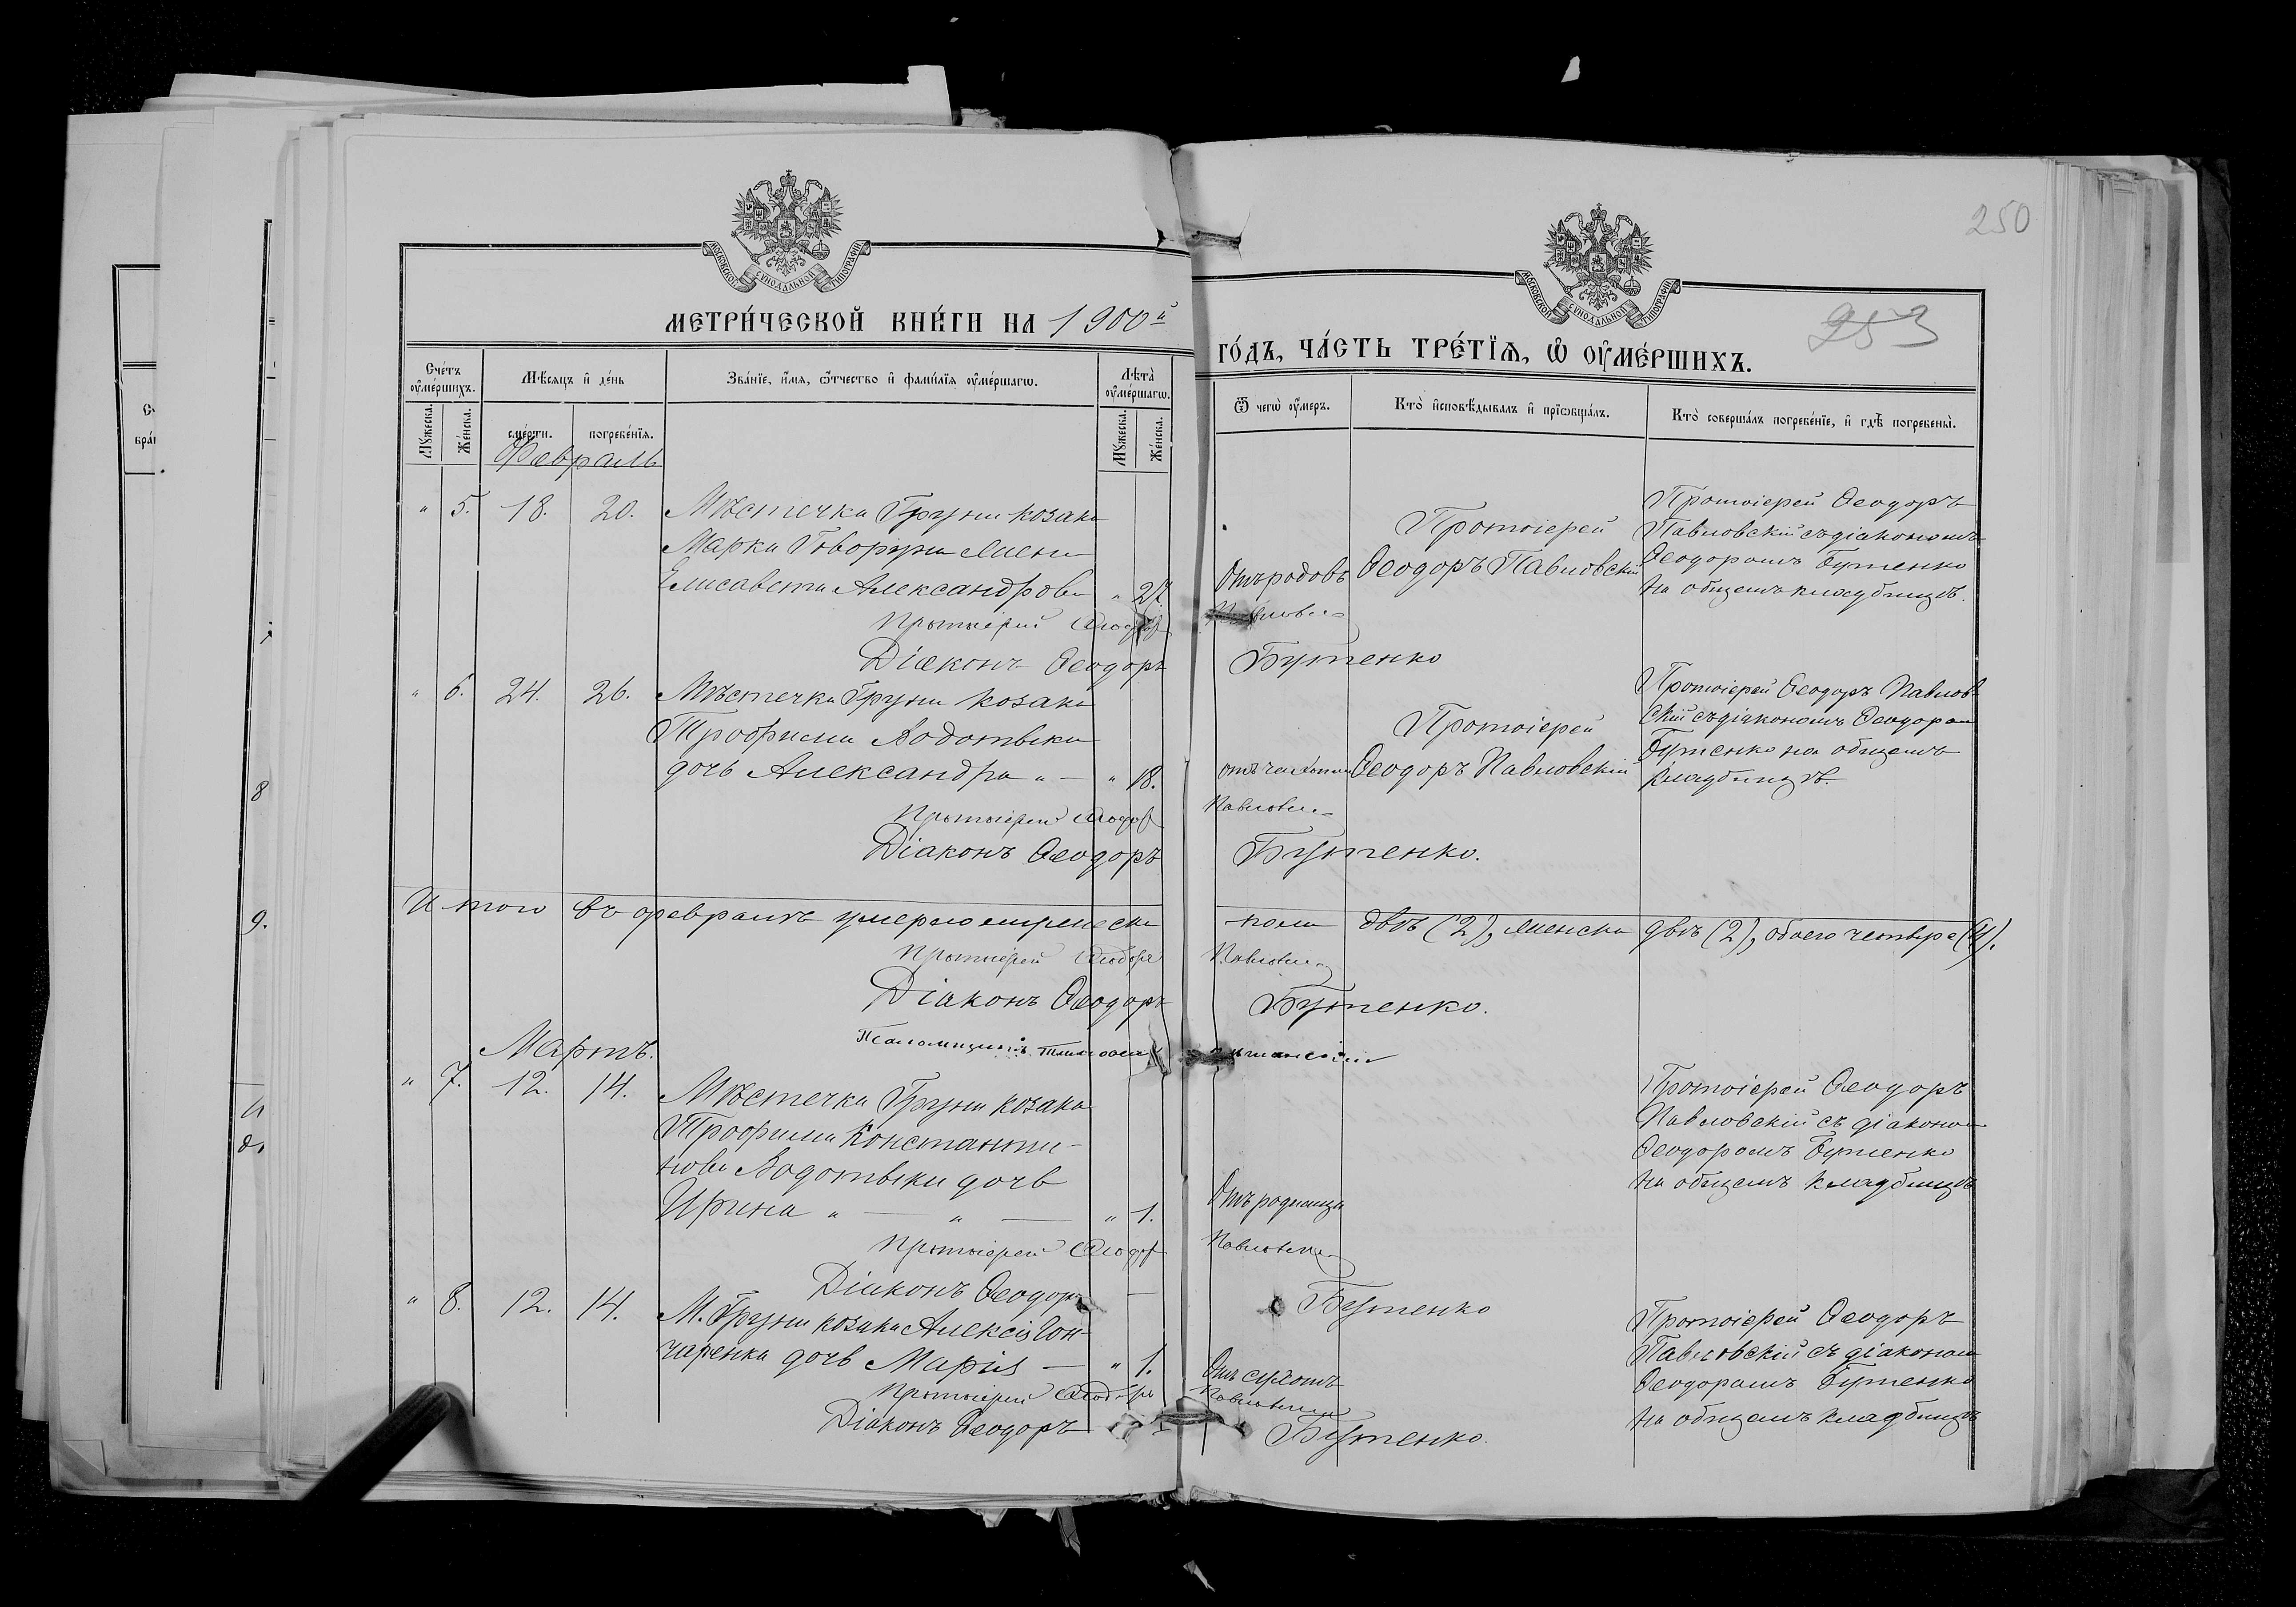 250
253
МОСКОВСКОЙ СУНОДАЛЬНОЙ ТИПОГРАФІИ
МОСКОВСКОЙ СУНОДАЛЬНОЙ ТИПОГРАФІИ
МЕТРИ́ЧЕСКОЙ КНИ́ГИ НА 1900й
ГО́ДЪ, ЧА́СТЬ ТРЕ́ТІѦ, Ѽ ОУМЕ́РШИХЪ.
Сче́тъ оумершихъ.
Мѣсяцъ и де́нь
Зва́нїе, и́мя, ѻ́тчество и фами́лїя оуме́ршагѡ.
Лѣта̀ оуме́ршагѡ.
Ѿ чегѡ̀ оу́меръ.
Кто̀ исповѣ́дывалъ и прїѡбща́лъ.
Кто̀ соверша́лъ погребе́нїе, и гдѣ̀ погребены̀.
Мꙋ́жеска.
Же́нска.
сме́рти.
погребе́нїя.
Мꙋ́жеска.
Же́нска.
Февраль
" 5. 18. 20. Мѣстечка Груни козака
Марка Говоруна жена
Елисавета Александрова " 27.
Отъ родовъ
Протоіерей
Ѳеодоръ Павловскій
Протоіерей Ѳеодоръ
Павловскій съ діакономъ
Ѳеодоромъ Бутенко
на общемъ кладбищѣ.
Протоіерей Ѳеодоръ Павловскій
Діаконъ Ѳеодоръ Бутенко
" 6. 24. 26. Мѣстечка Груни козака
Трофима Водотыки
дочь Александра " — " 18.
отъ чахотки
Протоіерей
Ѳеодоръ Павловскій
Протоіерей Ѳеодоръ Павлов-
скій съ діакономъ Ѳеодором
Бутенко на общемъ
кладбищѣ.
Протоіерей Ѳеодоръ Павловскій
Діаконъ Ѳеодоръ Бутенко.
Итого въ февралѣ умерло мужеска пола двѣ (2), женска двѣ (2), обоего четыре (4).
Протоіерей Ѳеодоръ Павловскій
Діаконъ Ѳеодоръ Бутенко.
Псаломщикъ
Мартъ.
" 7. 12. 14. Мѣстечка Груни козака
Трофима Константи-
нова Водотыки дочь
Ирина " — " — " 1.
Отъ родимца
Протоіерей Ѳеодоръ
Павловскій съ діаконом
Ѳеодоромъ Бутенко
на общемъ кладбищѣ
Протоіерей Ѳеодоръ Павловскій
Діаконъ Ѳеодоръ Бутенко
" 8. 12. 14. М. Груни козака Алексія Гон-
чаренка дочь Марія — " 1.
Отъ сухотъ
Протоіерей Ѳеодоръ
Павловскій съ діаконом
Ѳеодоромъ Бутенко
на общемъ кладбищѣ
Протоіерей Ѳеодоръ Павловскій
Діаконъ Ѳеодоръ Бутенко.
8
9.